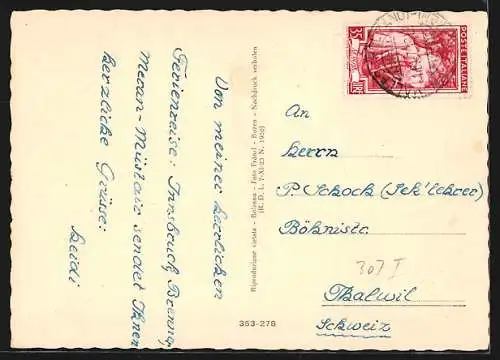 Von meiner herrlichen
Ferienreise: Innsbruck, Brenner,
Meran-Müstair sendet Ihnen
herzliche Grüsse:
Heidi
Riproduzione vietata - Bolzano - Foto Fränzl - Bozen - Nachdruck verboten
(R. D. L. 7-XI-23 N. 1950)
353-276
POSTE ITALIANE
LIRE 35
An
Herrn
P. Schoch (Sek'lehrer)
Böhnistr.
307 I
Thalwil
Schweiz